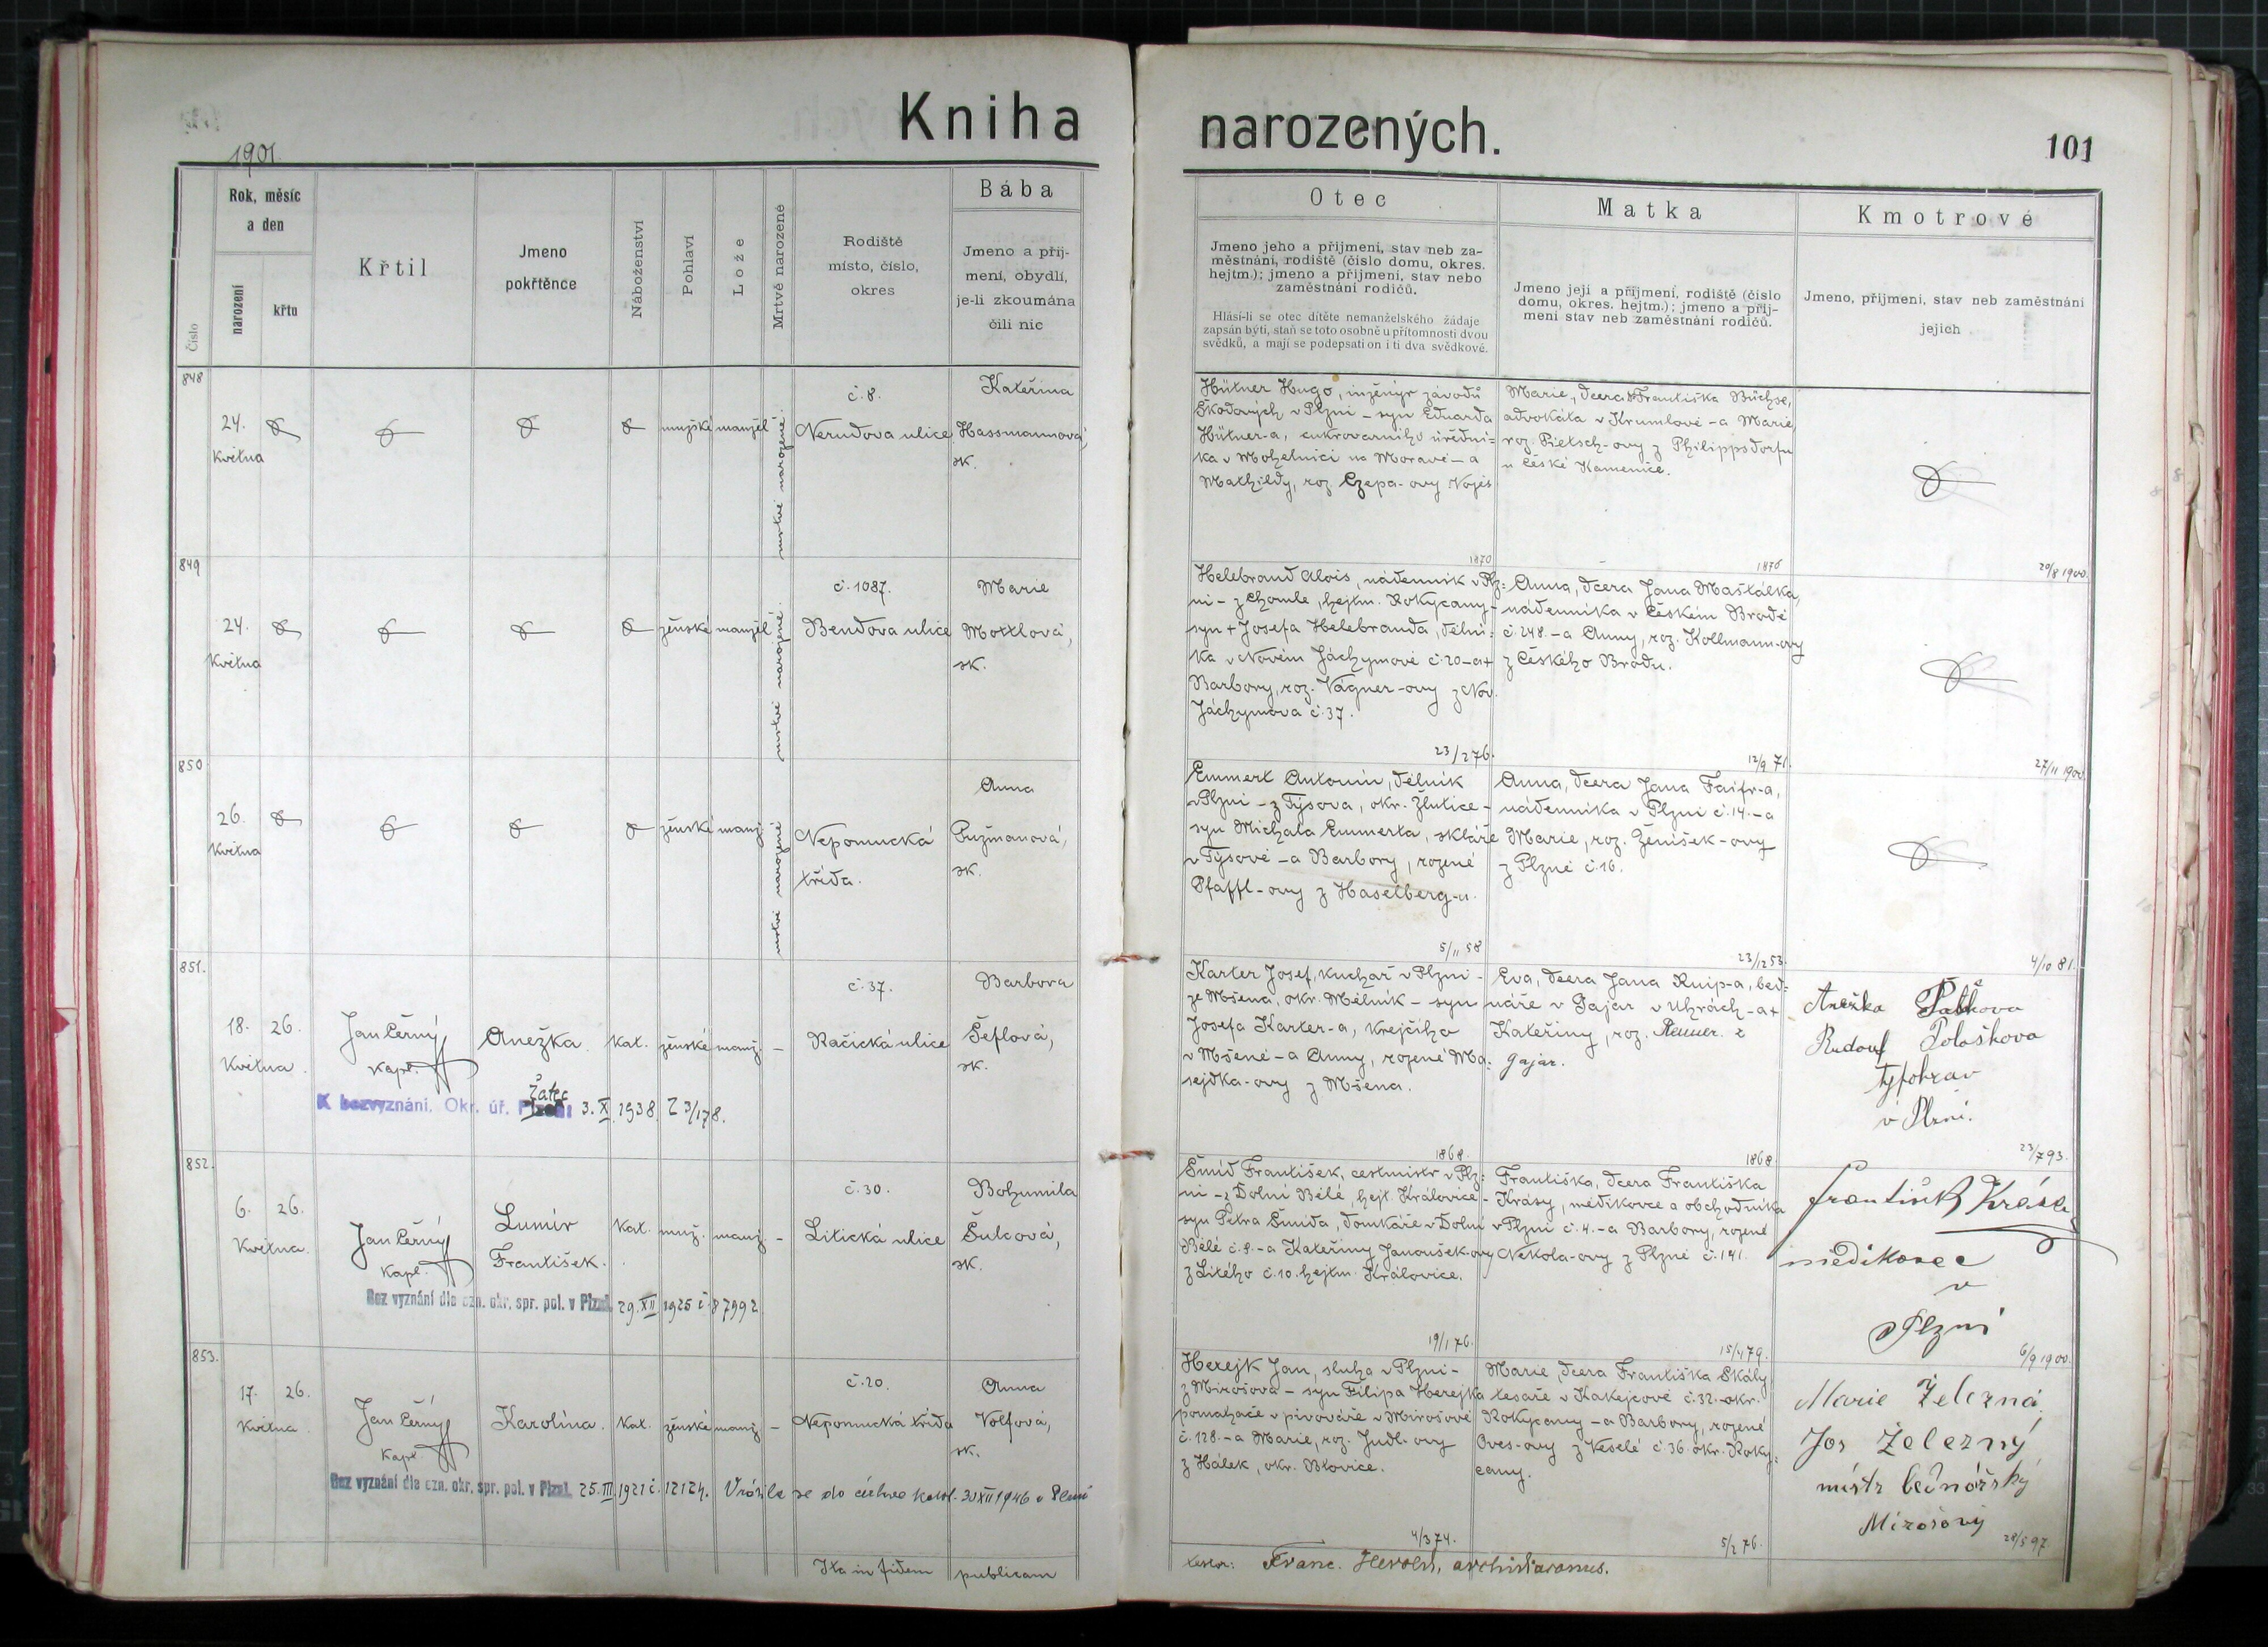 Kniha narozených.
101
1901.
Číslo
Rok, měsíc
a den
narození
křtu
Křtil
Jmeno
pokřtěnce
Náboženství
Pohlaví
Lože
Mrtvě narozené
Rodiště
místo, číslo,
okres
Bába
Jmeno a přij-
mení, obydlí,
je-li zkoumána
čili nic
Otec
Jmeno jeho a přijmení, stav neb za-
městnání, rodiště (číslo domu, okres.
hejtm.); jmeno a přijmení, stav nebo
zaměstnání rodičů.
Hlásí-li se otec dítěte nemanželského žádaje
zapsán býti, staň se toto osobně u přítomnosti dvou
svědků, a mají se podepsati on i ti dva svědkové.
Matka
Jmeno její a přijmení, rodiště (číslo
domu, okres. hejtm.); jmeno a přij-
mení stav neb zaměstnání rodičů.
Kmotrové
Jmeno, přijmení, stav neb zaměstnání
jejich
848
24.
Května
mužské
manžel
mrtvě narozené
č. 8.
Nerudova ulice
Kateřina
Hassmannová,
zk.
Hütner Hugo, inženýr závodů
Škodových v Plzni – syn Eduarda
Hütner-a, cukrovarního úřední-
ka v Mohelnici na Moravě – a
Mathildy, roz. Czepa-ovy
Marie, dcera Františka Büchse,
advokáta v Krumlově – a Marie,
roz. Pietsch-ovy z Philippsdorfu
u České Kamenice.
1870
1876
20/8 1900.
849
24.
Května
ženské
manžel
mrtvě narozené.
č. 1087.
Bendova ulice
Marie
Mottlová,
zk.
Helebrand Alois, nádenník v Plz-
ni – z Chomle, hejtm. Rokycany –
syn + Josefa Helebranda, dělní-
ka v Novém Jáchymově č. 20 – a +
Barbory, roz. Vágner-ovy z Nov.
Jáchymova č. 37.
Anna, dcera Jana Maštálka,
nádenníka v Českém Brodě
č. 248. – a Anny, roz. Kollmann-ovy
z Českého Brodu.
23/2 76.
12/9 71.
27/11 1900.
850
26.
Května
ženské
manž.
mrtvě narozené
Nepomucká
třída.
Anna
Pužmanová,
zk.
Emmert Antonín, dělník
v Plzni – z Týsova, okr. Žlutice –
syn Michala Emmerta, skláře
v Týsově – a Barbory, rozené
Pfaffl-ovy z Haselberg-u.
Anna, dcera Jana Faifr-a,
nádenníka v Plzni č. 14. – a
Marie, roz. Ženíšek-ovy
z Plzně č. 16.
5/11 58
23/12 53.
4/10 81.
851.
18. 26.
Května.
Jan Černý
kapl.
Anežka.
kat.
ženské
manž.
–
č. 37.
Račická ulice
Barbora
Šeflová,
zk.
K bezvyznání. Okr. úř. Plzeň Žatec 3. X. 1938 Z 3/178.
Karter Josef, kuchař v Plzni –
ze Mšena, okr. Mělník – syn
Josefa Karter-a, krejčího
v Mšeně – a Anny, rozené Ma-
sejdka-ovy z Mšena.
Eva, dcera Jana Knip-a, bed-
náře v Gajar v Uhrách – a +
Kateřiny, roz. Renner. z
Gajar.
Anežka
Rudolf
v Plzni.
1868.
1868
23/7 93.
852.
6. 26.
Května.
Jan Černý
kapl.
Lumír
František.
kat.
muž.
manž.
–
č. 30.
Litická ulice
Bohumila
Šulcová,
zk.
Bez vyznání dle ozn. okr. spr. pol. v Plzni. 29. XII 1925 č. 87992
Šmíd František, cestmistr v Plz-
ni – z Dolní Bělé, hejt. Královice –
syn Petra Šmída, domkáře v Dolní
Bělé č. 8. – a Kateřiny Janoušek-ovy
z Litého č. 10. hejtm. Královice.
Františka, dcera Františka
Krásy, mědikovce a obchodníka
v Plzni č. 4. – a Barbory, rozené
Nekola-ovy z Plzně č. 141.
František Krása
mědikovec
v
Plzni
19/1 76.
15/4 79.
6/9 1900.
853.
17. 26.
Května.
Jan Černý
kapl.
Karolína.
kat.
ženské
manž.
–
č. 20.
Nepomucká třída
Anna
Volfová,
zk.
Bez vyznání dle ozn. okr. spr. pol. v Plzni. 25. III 1921 č. 12124. Vrátila se do církve katol. 30 XII 1946 v Plzni
Herejk Jan, sluha v Plzni –
z Mirošova – syn Filipa Herejka
pomahače v pivováře v Mirošově
č. 128. – a Marie, roz. Judl-ovy
z Hálek, okr. Blovice.
Marie dcera Františka Skály
tesaře v Kakejcově č. 32. okr.
Rokycany – a Barbory, rozené
Oves-ovy z Veselé č. 36. okr. Roky-
cany.
Marie Železná,
Jos Železný
mistr bednářský
Mirošový
4/3 74.
5/2 76.
28/5 97.
Ita in fidem publicam
testor: Franc. Herold, archidiaconus.